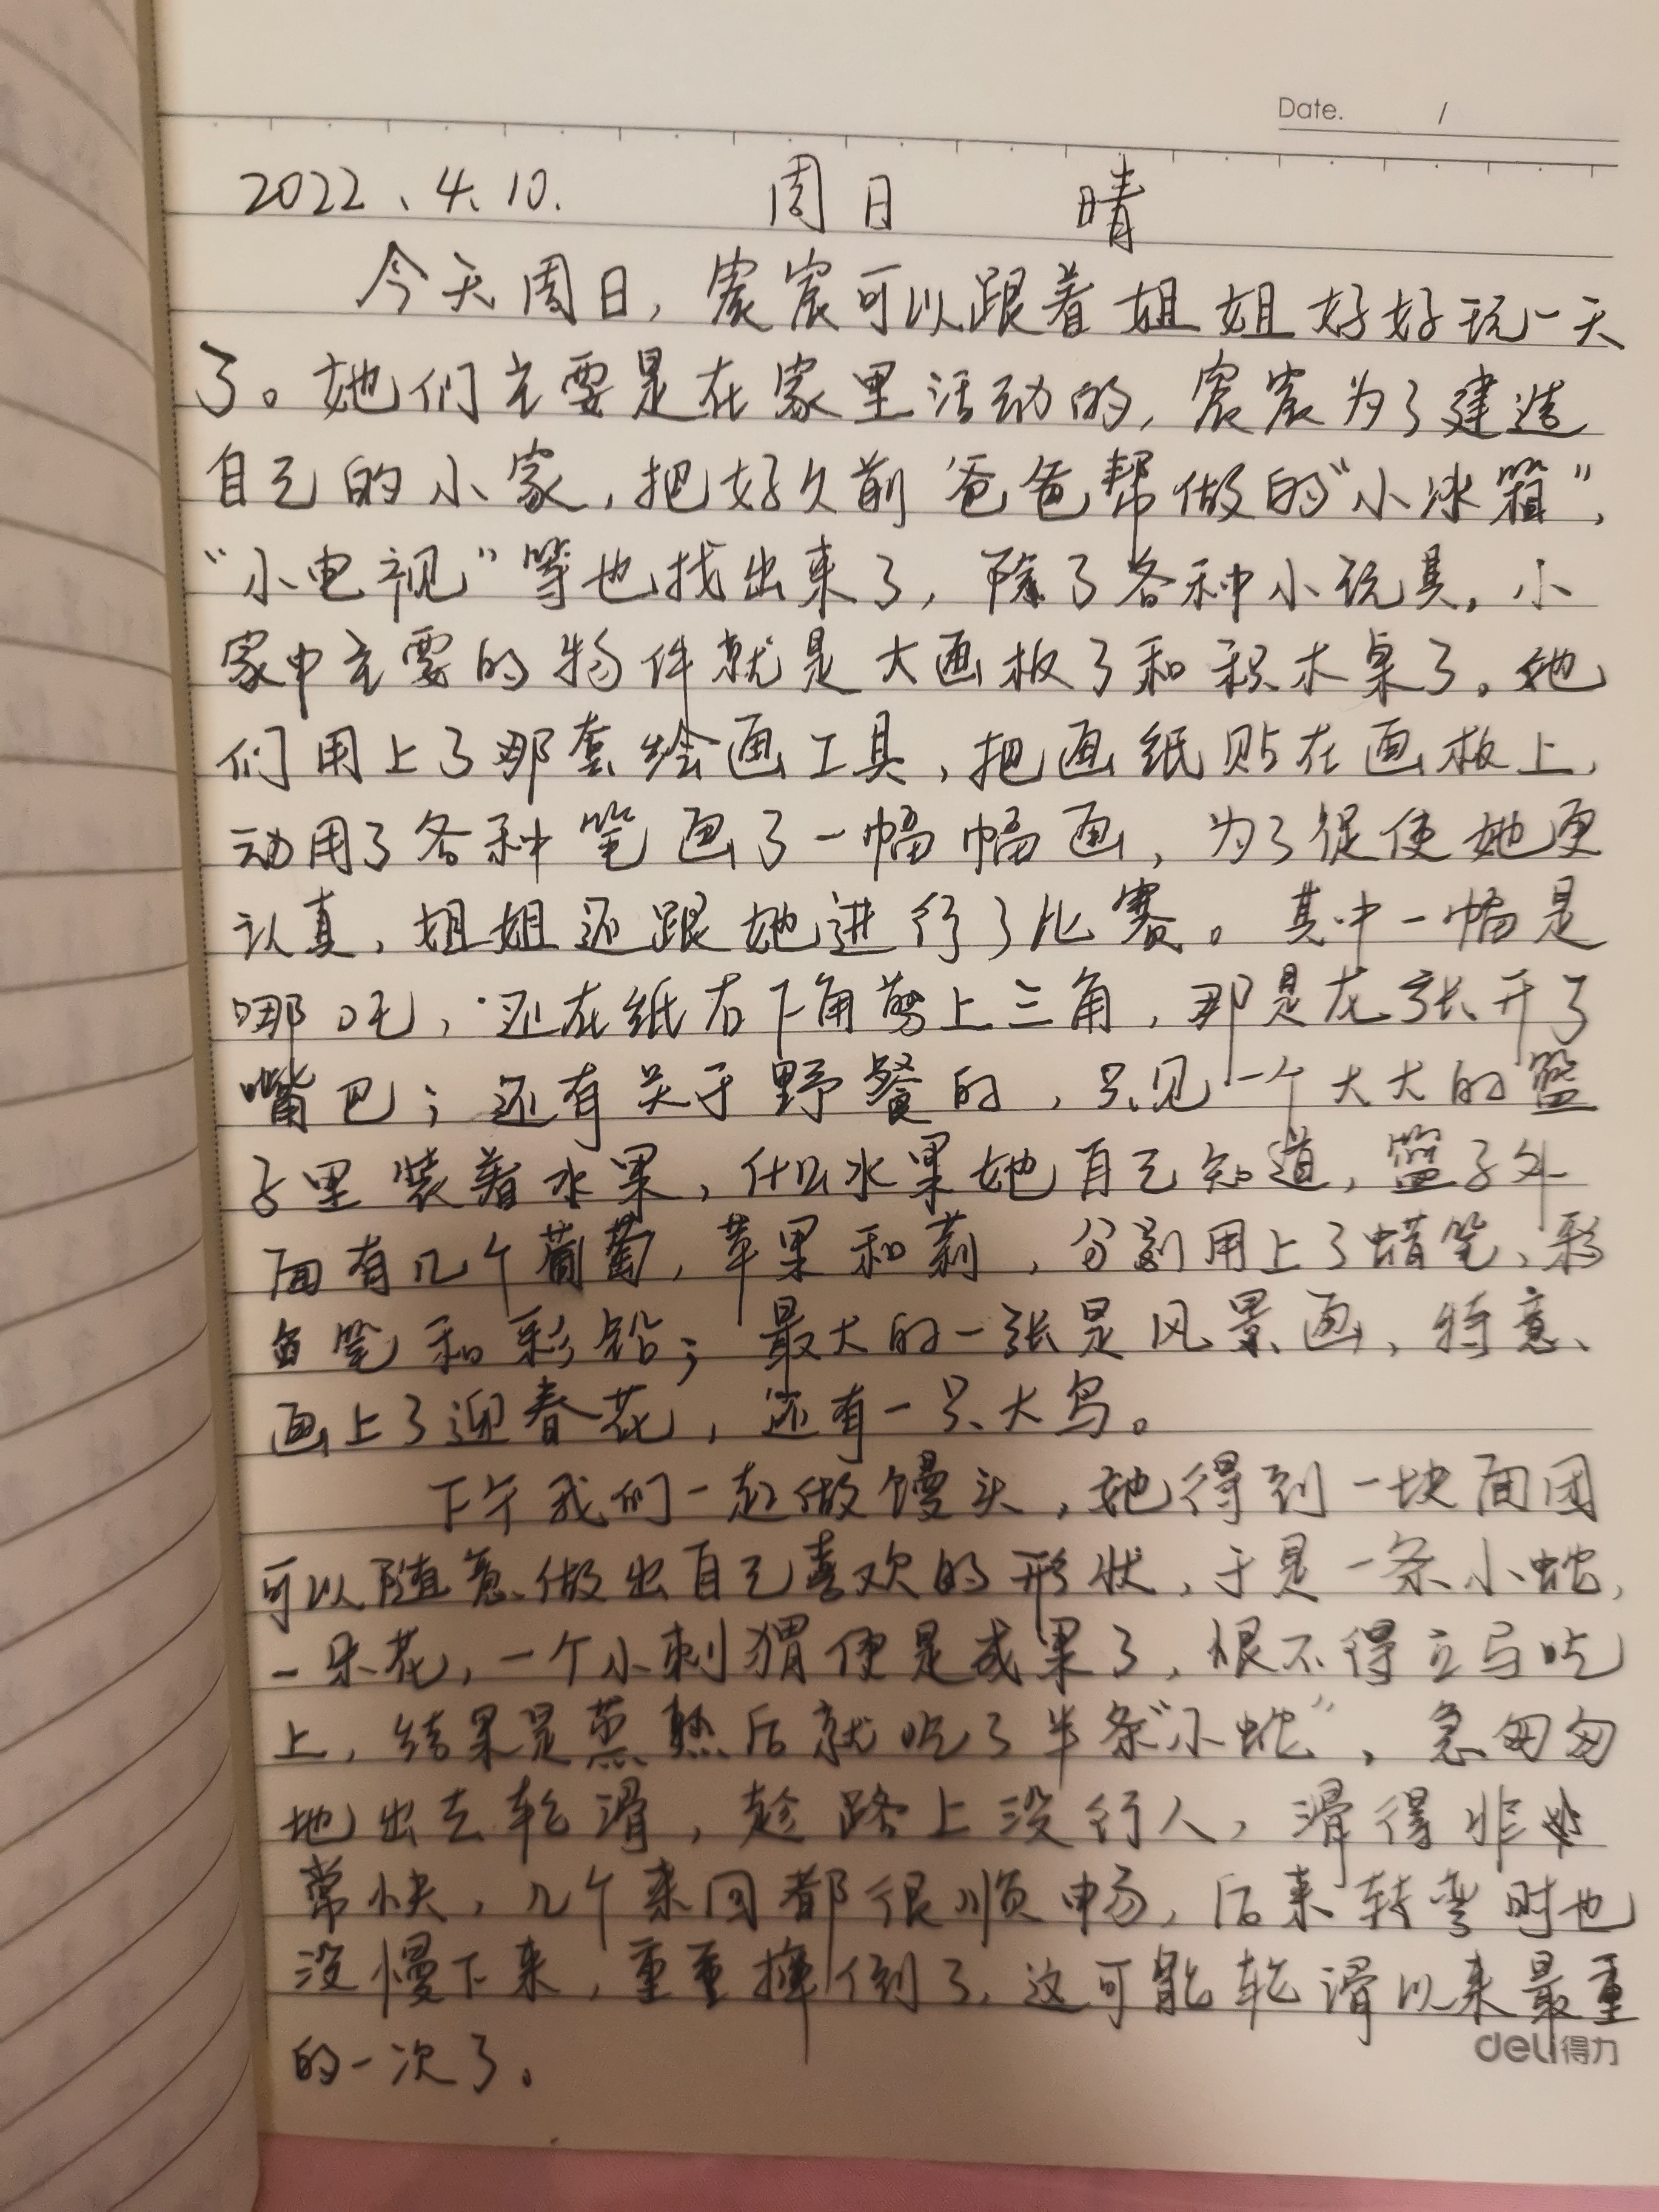 Date. /
2022、4.10. 周日 晴
今天周日，宸宸可以跟着姐姐好好玩一天
了。她们主要是在家里活动的，宸宸为了建造
自己的小家，把好久前爸爸帮做的“小冰箱”，
“小电视”等也找出来了，除了各种小玩具，小
家中主要的物件就是大画板了和积木桌了。她
们用上了那套绘画工具，把画纸贴在画板上，
动用了各种笔画了一幅幅画，为了促使她更
认真，姐姐还跟她进行了比赛。其中一幅是
哪吒，还在纸右下角剪上三角，那是龙张开了
嘴巴；还有关于野餐的，只见一个大大的篮
子里装着水果，什么水果她自己知道，篮子外
面有几个葡萄，苹果和莉，分别用上了蜡笔、彩
色笔和彩铅；最大的一张是风景画，特意、
画上了迎春花，还有一只大鸟。
下午我们一起做馒头，她得到一块面团
可以随意做出自己喜欢的形状，于是一条小蛇，
一朵花，一个小刺猬便是成果了，恨不得立马吃
上，结果是蒸熟后就吃了半条“小蛇”，急匆匆
地出去轮滑，趁路上没行人，滑得非
常快，几个来回都很顺畅，后来转弯时也
没慢下来，重重摔倒了，这可能轮滑以来最重
的一次了。
deli得力